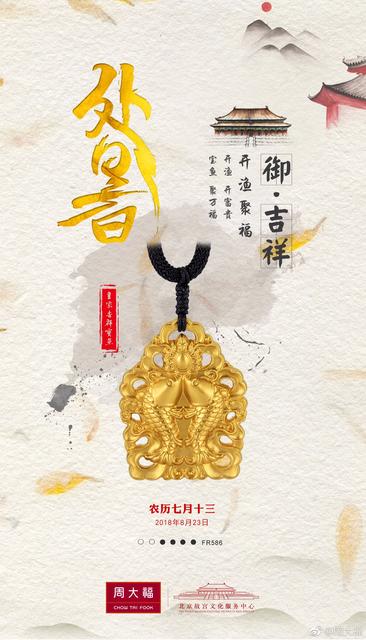 处暑
御·吉祥
开渔聚福
开渔 开富贵
宝鱼 聚万福
皇家吉祥宝
农历七月十三
2018年8月23日
FR586
周大福
CHOW TAI FOOK
北京故宫文化服务中心